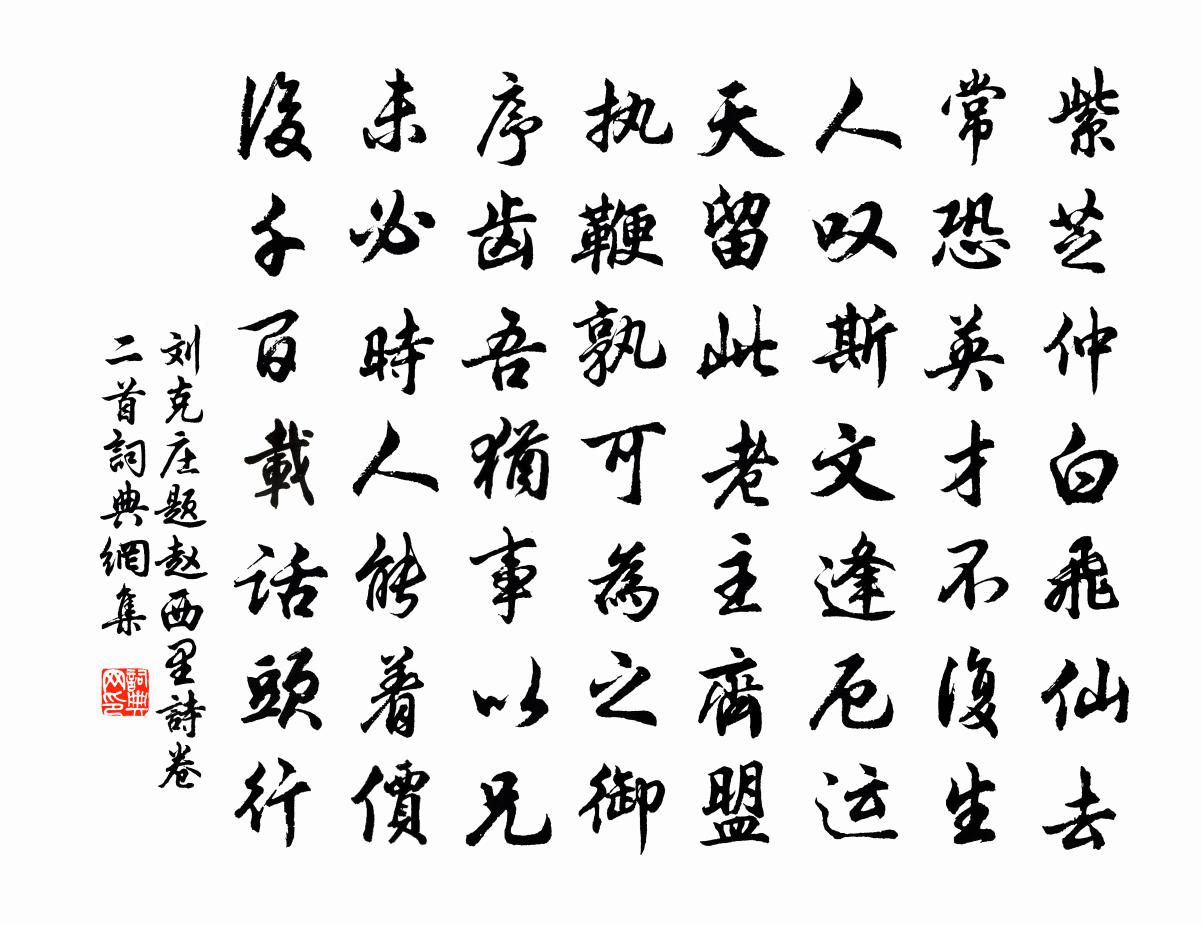 紫芝仲白飛仙去
常恐英才不復生
人叹斯文逢厄运
天留此老主齊盟
执鞭孰可為之御
序齿吾猶事以兄
未必時人能着價
後千百載話頭行
刘克庄题赵西里詩卷
二首詞典網集
詞典网印